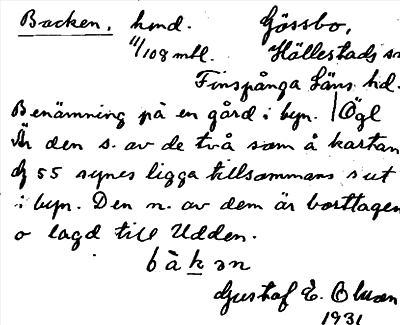 Backen, hmd. Gössbo,
11/108 mtl. Hällestads sn
Finspånga Läns hd.
Benämning på en gård i byn. | Ögl
Är den s. av de två som å kartan
dg 55 synes ligga tillsammans s ut
i byn. Den n. av dem är borttagen
o lagd till Udden.
bàkən
Gustaf E. Olsson
1931